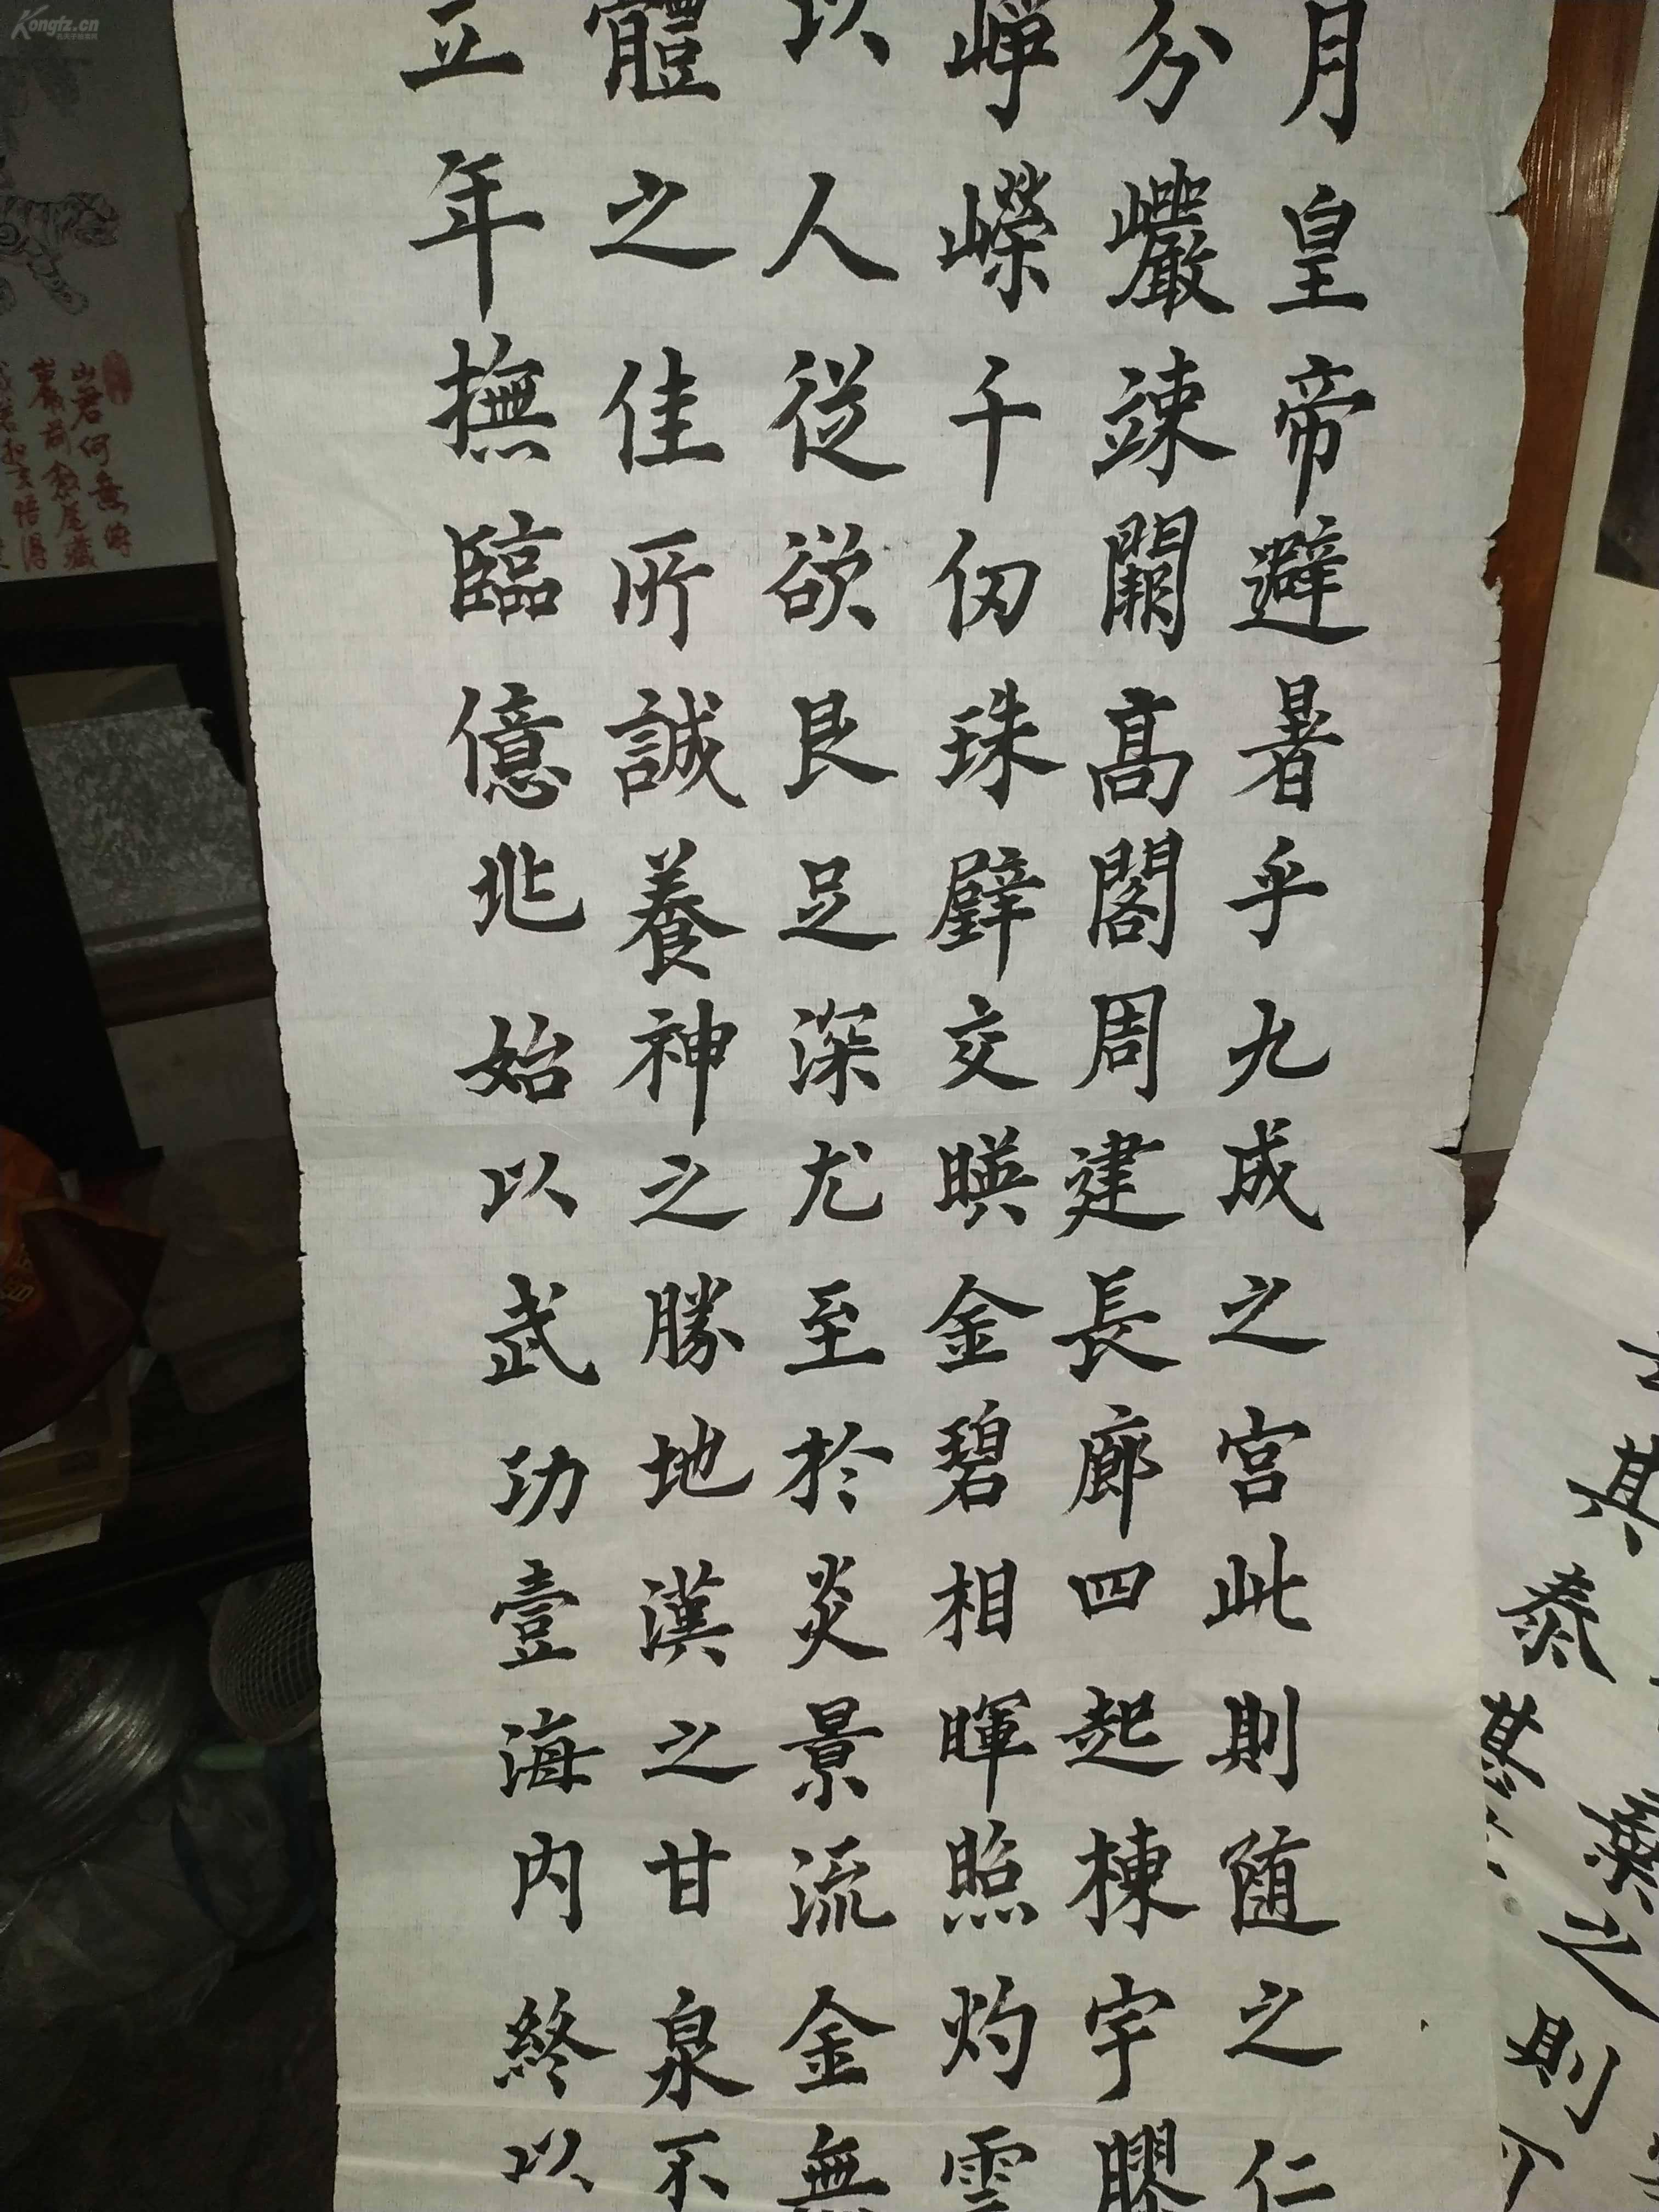 月皇帝避暑乎九成之宮此則随之仁
分巖竦闕高閣周建長廊四起棟宇膠
崢嶸千仞珠壁交暎金碧相暉照灼雲
以人從欲良足深尤至於炎景流金無
體之佳所誠養神之勝地漢之甘泉不
立年撫臨億兆始以武功壹海內終以
其
泰
其
之
則
山君何
Kongfz.cn